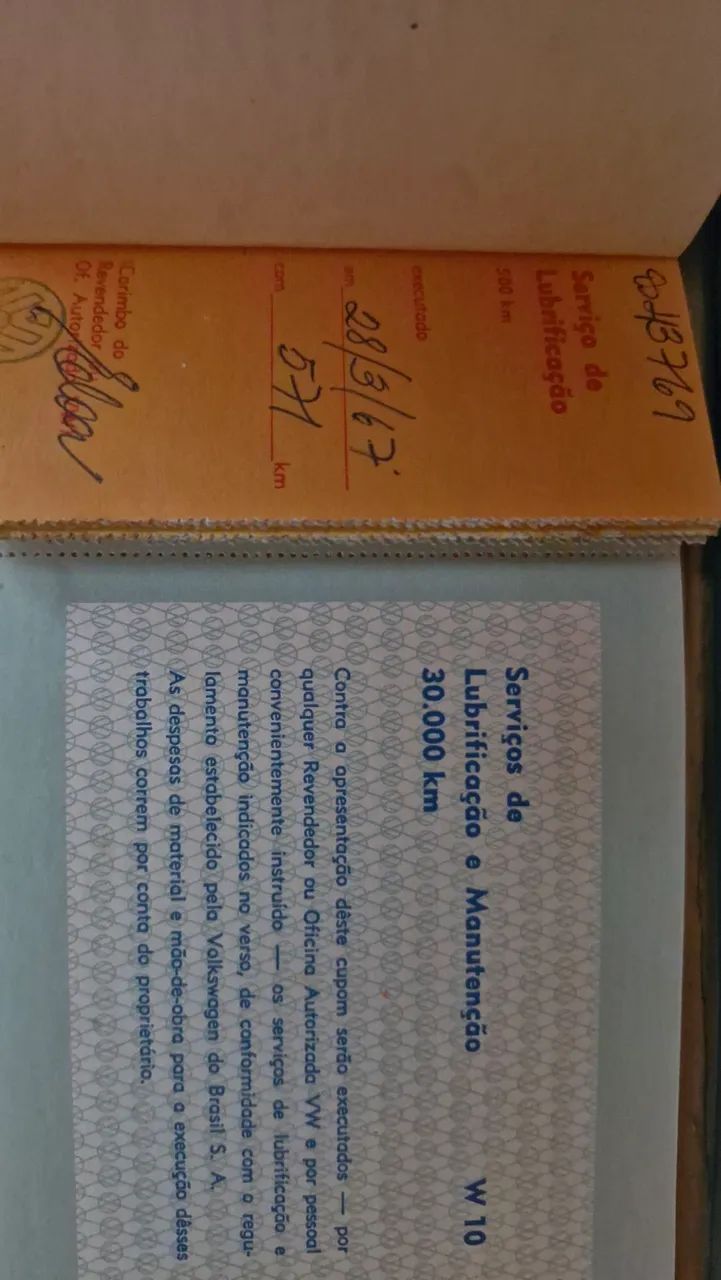 Serviço de
Lubrificação
500 km
executado
em 28/3/67
com 571 km
Carimbo do
Revendedor
Of. Autor
Serviços de
Lubrificação e Manutenção W 10
30.000 km
Contra a apresentação dêste cupom serão executados — por
qualquer Revendedor ou Oficina Autorizada VW e por pessoal
convenientemente instruído — os serviços de lubrificação e
manutenção indicados no verso, de conformidade com o regu-
lamento estabelecido pela Volkswagen do Brasil S. A.
As despesas de material e mão-de-obra para a execução dêsses
trabalhos correm por conta do proprietário.